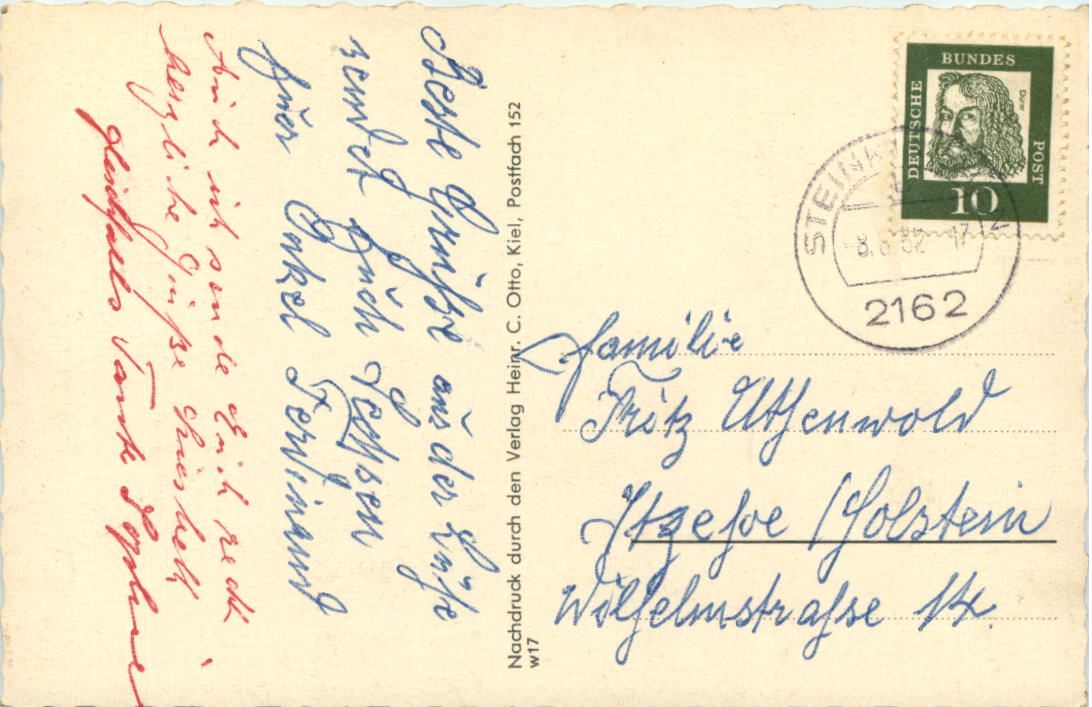 Beste Grüsse aus der Kühle
sendet Euch
Euer Onkel Ferdinand
Auch ich sende Euch recht
herzliche Grüße
gleichfalls Tante
Nachdruck durch den Verlag Heinr. C. Otto, Kiel, Postfach 152
w17
DEUTSCHE
BUNDES
POST
Dürer
10
2162
Familie
Fritz Uthenwold
Itzehoe /Holstein
Wilhelmstrasse